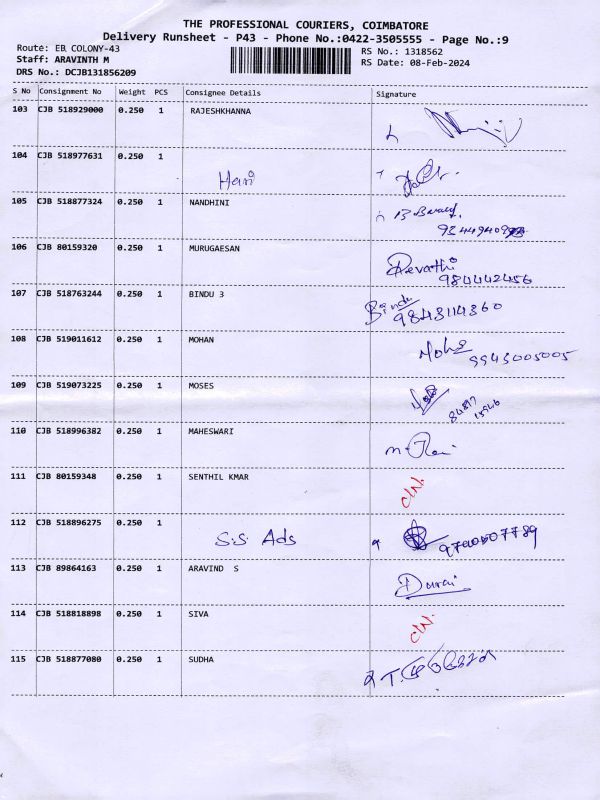 THE PROFESSIONAL COURIERS, COIMBATORE
Delivery Runsheet - P43 - Phone No.:0422-3505555 - Page No.:9
Route: EB COLONY-43
Staff: ARAVINTH M
DRS No.: DCJB131856209
RS No.: 1318562
RS Date: 08-Feb-2024
S No Consignment No Weight PCS Consignee Details Signature
103 CJB 518929000 0.250 1 RAJESHKHANNA
104 CJB 518977631 0.250 1
Hari
105 CJB 518877324 0.250 1 NANDHINI
106 CJB 80159320 0.250 1 MURUGAESAN
Revathi
984442456
107 CJB 518763244 0.250 1 BINDU 3
Bindu
9843114360
108 CJB 519011612 0.250 1 MOHAN
9943005005
109 CJB 519073225 0.250 1 MOSES
110 CJB 518996382 0.250 1 MAHESWARI
111 CJB 80159348 0.250 1 SENTHIL KMAR
112 CJB 518896275 0.250 1
S.S. Ads
113 CJB 89864163 0.250 1 ARAVIND S
Durai
114 CJB 518818898 0.250 1 SIVA
115 CJB 518877080 0.250 1 SUDHA